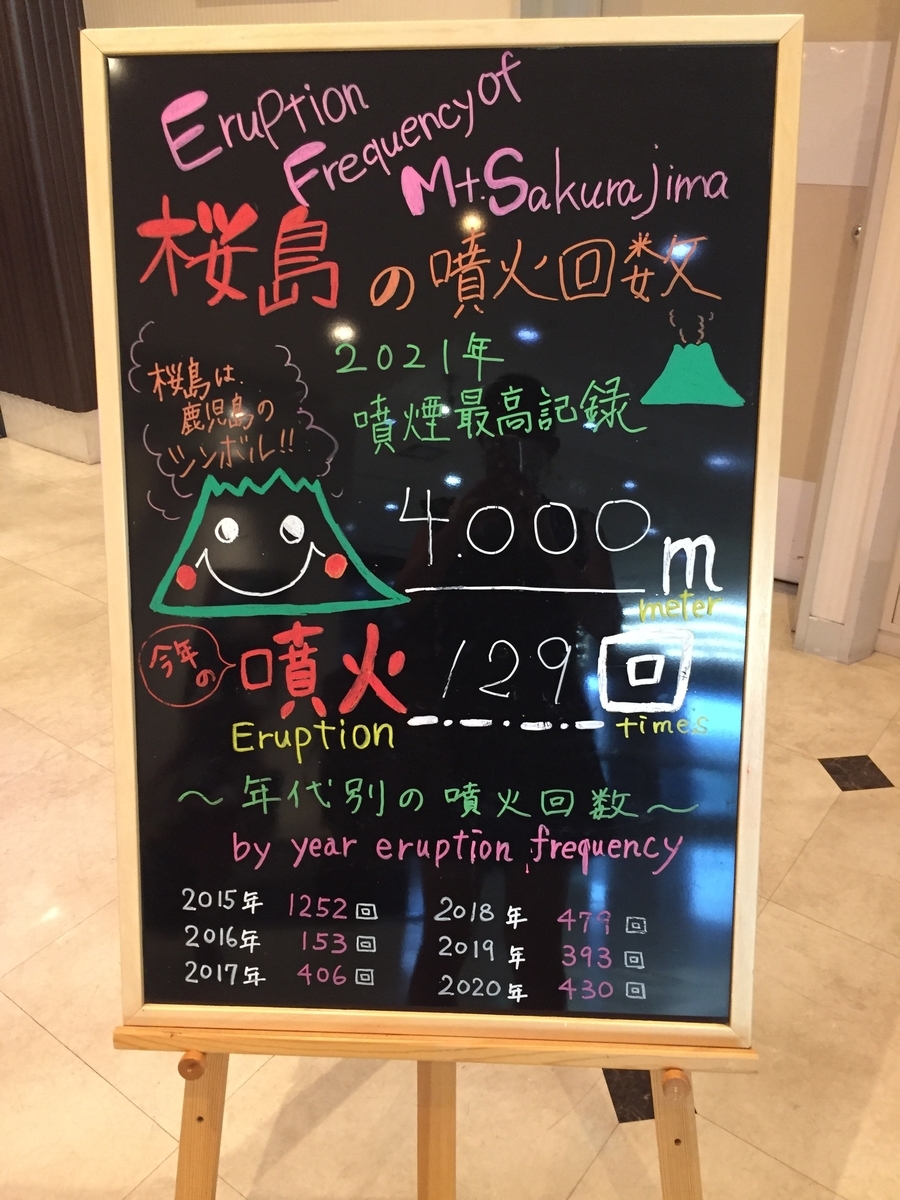 Eruption
Frequency of
Mt.Sakurajima
桜島の噴火回数
桜島は、
鹿児島の
シンボル!!
2021年
噴煙最高記録
4.000m
meter
今年の
噴火 129回
Eruption times
～年代別の噴火回数～
by year eruption frequency
2015年 1252回
2016年 153回
2017年 406回
2018年 479回
2019年 393回
2020年 430回